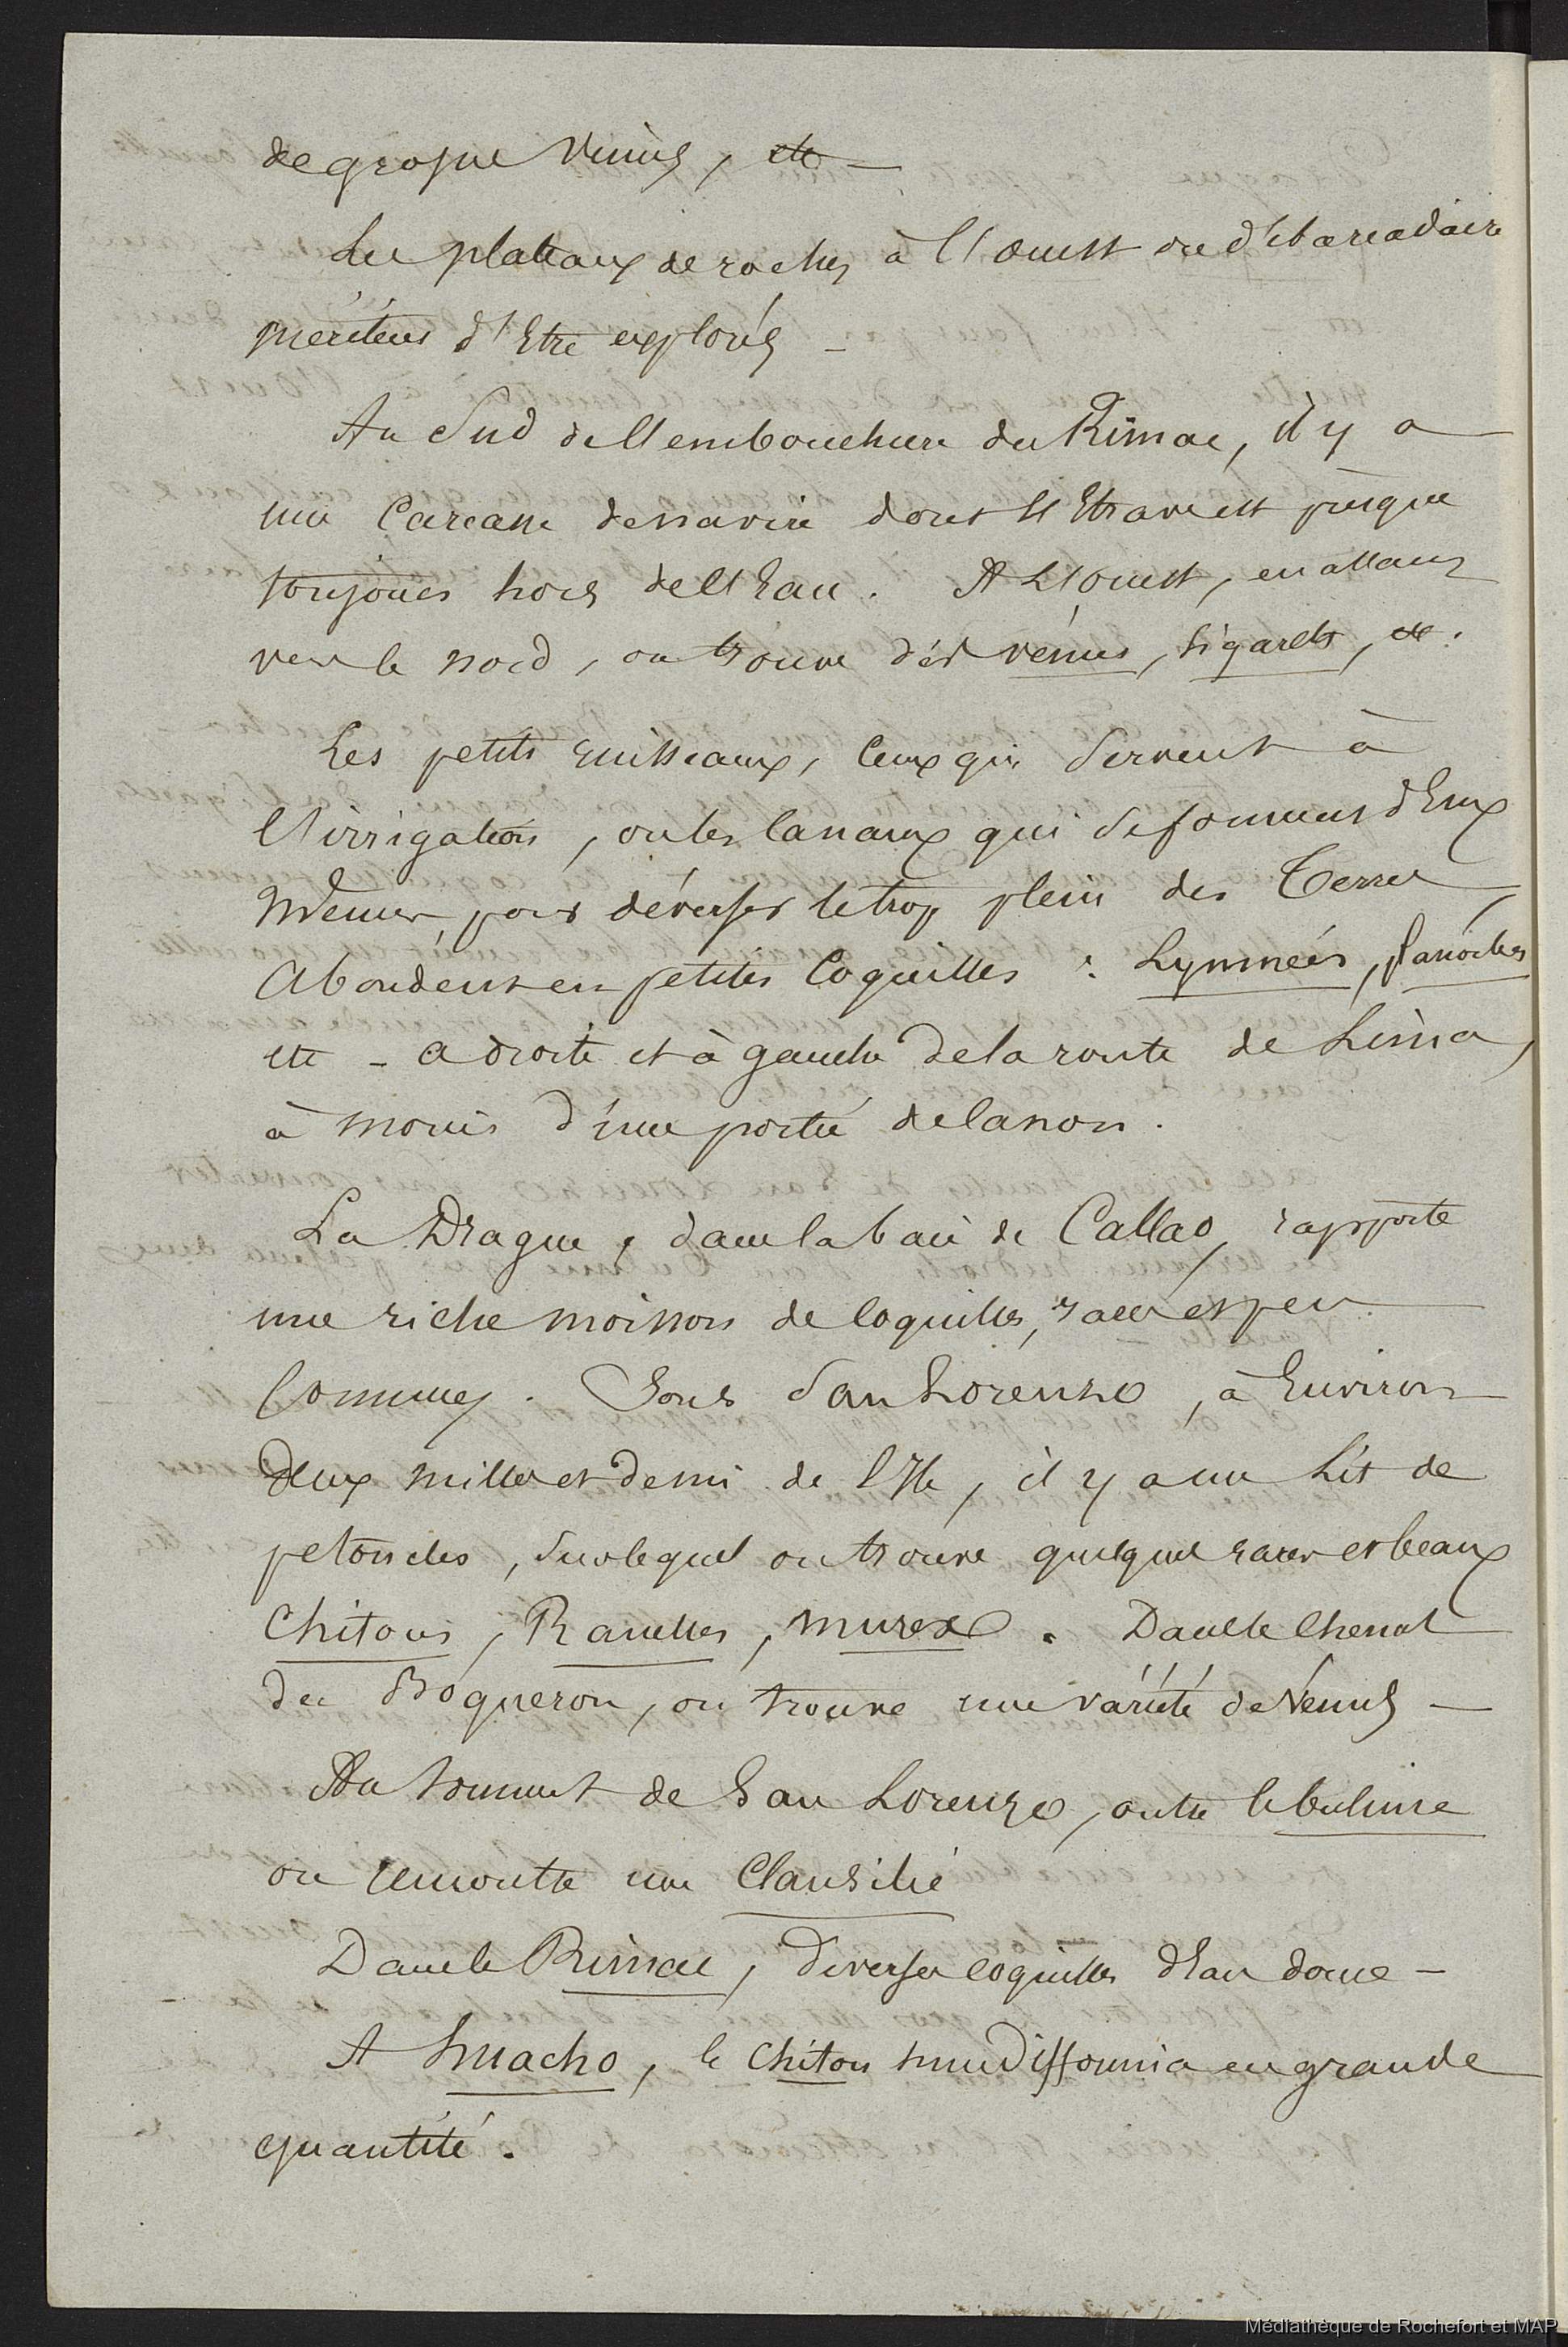 de grosses Vénus, etc —
Les plateaux de roches à l'Ouest du d'ebarcadaire
méritent d'Etre explorés —
Au Sud de l'embouchure du Rimac, il y a
une Carcasse de navire dont l'Etrave est presque
toujours hors de l'Eau. A L'ouest, en allant
vers le nord, on trouve des vénus, sigarets, etc.
Les petits ruisseaux, ceux qui servent à
l'irrigation, ou les canaux qui se forment d'Eux
mêmes, pour déverser le trop plein des Terres
abondent en petites Coquilles : Lymnées,
etc — a droite et à gauche de la route de Lima,
à moins d'une portée de canon.
La Drague, dans la baie de Callao, rapporte
une riche moisson de Coquilles, rares et peu
Communes. Sous San Lorenzo, à Environ
deux milles et demi de l'Ile, il y a un Lit de
petoncles, sur lequel on trouve quelques rares et beaux
Chitons, Ranelles, murex. Dans le Chenal
du Boqueron, on trouve une variété de Vénus —
Au sommet de San Lorenzo, outre le bulime
on rencontre une Clausilie
Dans le Rimac, diverses coquilles d'Eau douce —
A huacho, le Chiton en grande
quantité.
Médiathèque de Rochefort et MAP